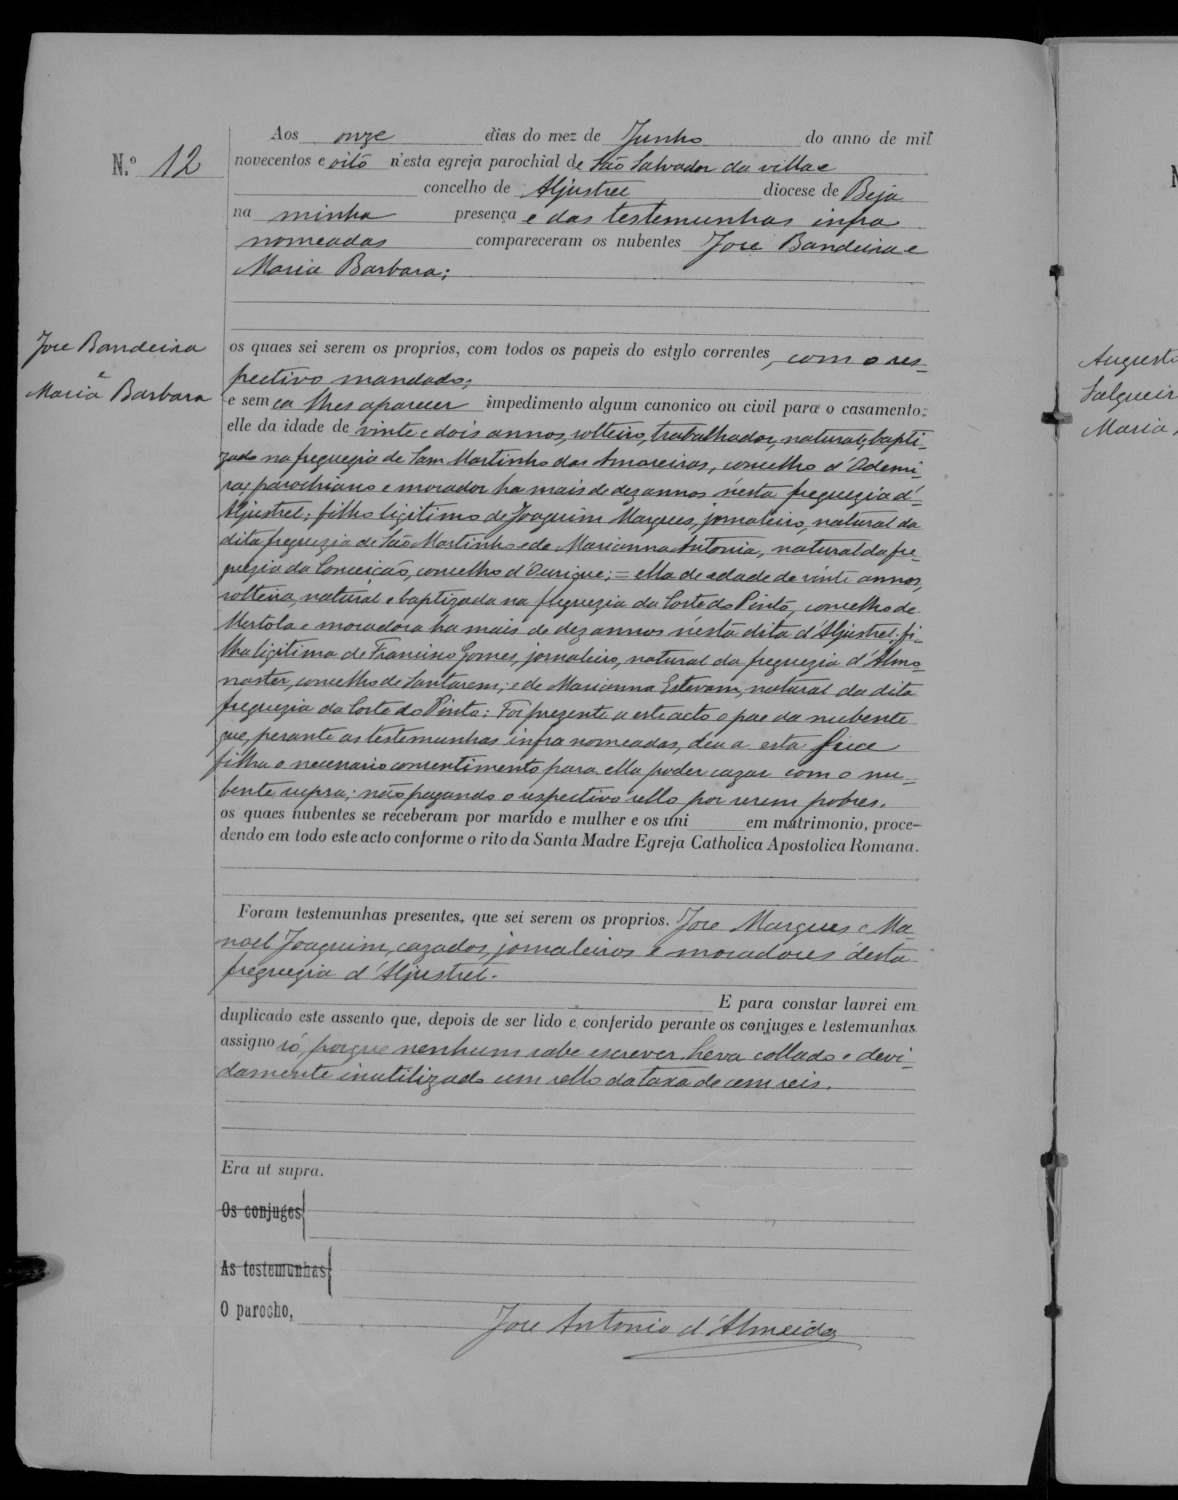 Aos onze dias do mez de Junho do anno de mil
N.º 12
novecentos e oito n'esta egreja parochial de São Salvador da villa e
concelho de Aljustrel diocese de Beja
na minha presença e das testemunhas infra
nomeadas compareceram os nubentes José Bandeira e
Maria Barbara;
José Bandeira
e
Maria Barbara
os quaes sei serem os proprios, com todos os papeis do estylo correntes, com o res-
pectivo mandado;
e sem ca lhes aparecer impedimento algum canonico ou civil para o casamento;
elle da idade de vinte e dois annos, solteiro, trabalhador, natural e bapti-
zado na freguezia de Sam Martinho das Amoreiras, concelho d'Odemi-
ra; parochiano e morador ha mais de dez annos n'esta freguezia d'
Aljustrel; filho legitimo de Joaquim Marques, jornaleiro, natural da
dita freguezia de São Martinho e de Marianna Antonia, natural da fre-
guezia da Conceição, concelho d'Ourique; = ella de edade de vinte annos,
solteira, natural e baptizada na freguezia da Corte do Pinto, concelho de
Mertola e moradora ha mais de dez annos n'esta dita d'Aljustrel, fi-
lha ligitima de Francisco Gomes, jornaleiro, natural da freguezia d'Almo-
naster, concelho de Santarem; e de Marianna Estevam, natural da dita
freguezia da Corte do Pinto: Foi prezente a este acto o pae da nubente
que, perante as testemunhas infra nomeadas, deu a esta
filha o necessario consentimento para ella poder cazar com o nu-
bente supra; não pagando o respectivo sello por serem pobres.
os quaes nubentes se receberam por marido e mulher e os uni em matrimonio, proce-
dendo em todo este acto conforme o rito da Santa Madre Egreja Catholica Apostolica Romana.
Foram testemunhas presentes, que sei serem os proprios. José Marques e Ma-
noel Joaquim, cazados, jornaleiros e moradores d'esta
freguezia d'Aljustrel.
E para constar lavrei em
duplicado este assento que, depois de ser lido e conferido perante os conjuges e testemunhas
assigno só, porque nenhum sabe escrever. Leva collado e devi-
damente inutilizado um sello da taxa de cem reis.
Era ut supra.
Os conjuges
As testemunhas
O parocho,
José Antonio d'Almeida
Augusto
Salgueir
Maria